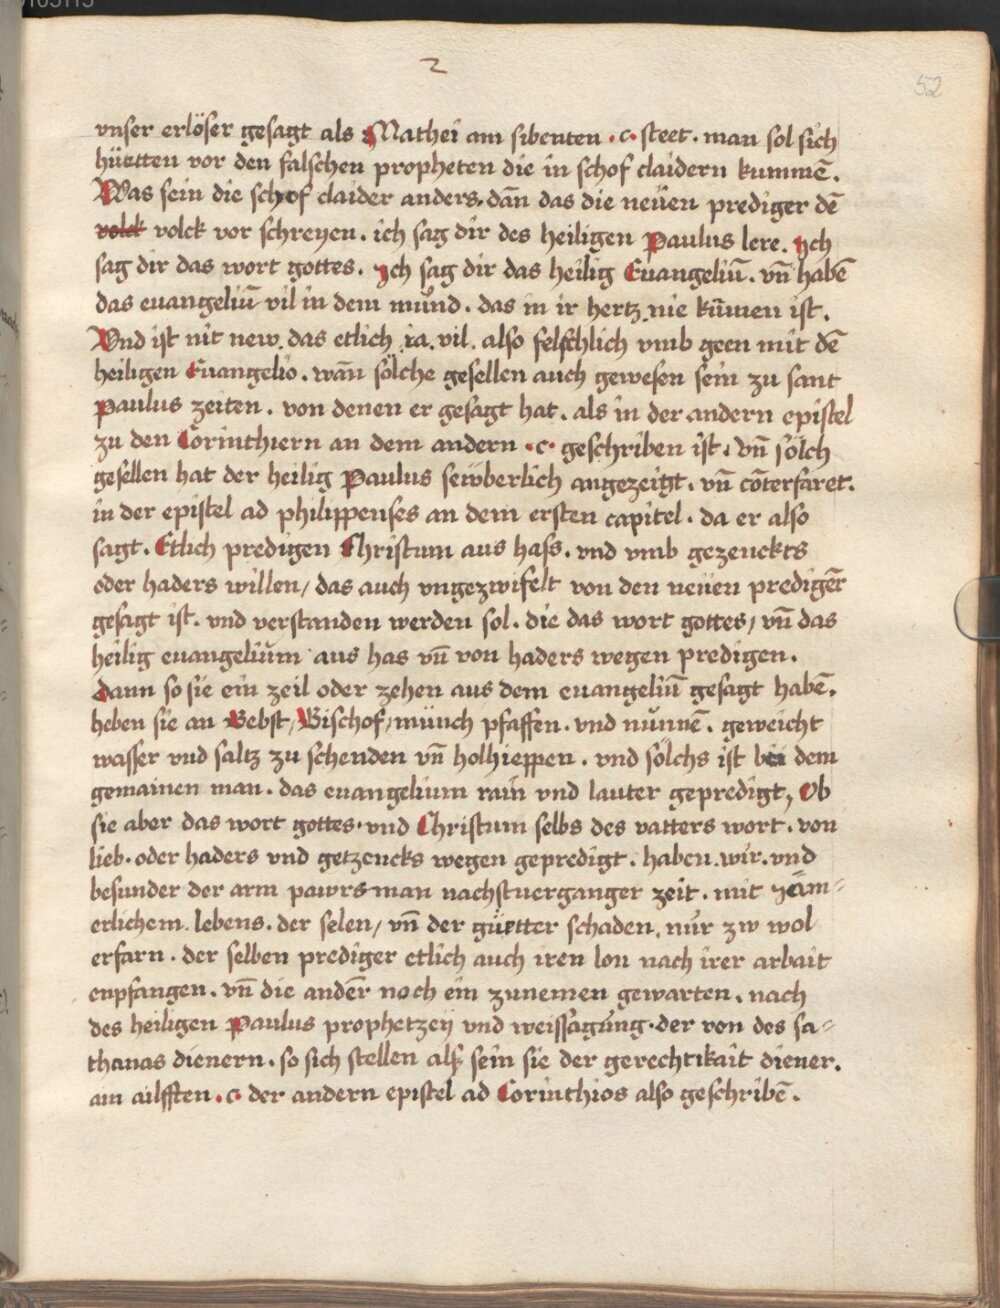 2
52
vnser erlöser gesagt als Mathei am sibenten .c. steet. man sol sich
hüetten vor den falschen propheten die in schof claidern kummē.
Was sein die schof claider anders. dañ das die neüen prediger dē
volck volck vor schreyen. ich sag dir des heiligen Paulus lere. Ich
sag dir das wort gottes. Ich sag dir das heilig Euangeliū. vñ habē
das euangeliū vil in dem mund. das in ir hertz nie kūmen ist.
Vnd ist nit new. das etlich ia. vil. also felschlich vmb geen mit dē
heiligen Euangelio. wañ sölche gesellen auch gewesen sein zu sant
Paulus zeiten. von denen er gesagt hat. als in der andern epistel
zu den Corinthiern an dem andern .c. geschriben ist. vñ sölch
gesellen hat der heilig Paulus seüberlich angezeigt. vñ cōterfaret.
in der epistel ad philippenses an dem ersten capitel. da er also
sagt. Etlich predigen Christum aus hass. vnd vmb gezenckts
oder haders willen, das auch vngezwifelt von den neüen predigēr
gesagt ist. vnd verstanden werden sol. die das wort gottes, vñ das
heilig euangelium aus has vñ von haders wegen predigen.
Dann so sie ein zeil oder zehen aus dem euangeliū gesagt habē.
heben sie an Bebst, Bischof, münch pfaffen. vnd nunnē. geweicht
wasser vnd saltz zu schenden vñ holhieppen. vnd sölchs ist bei dem
gemainen man. das euangelium rain vnd lauter gepredigt, Ob
sie aber das wort gottes. vnd Christum selbs des vatters wort. von
lieb. oder haders vnd getzencks wegen gepredigt. haben. wir. vnd
besunder der arm pawrsman nachstuerganger zeit. mit jäm=
erlichem lebens. der selen, vñ der güetter schaden. nur zw wol
erfarn. der selben prediger etlich auch iren lon nach irer arbait
enpfangen. vñ die andēr noch ein zunemen gewarten. nach
des heiligen Paulus prophetzeÿ vnd weissagung. der von des sa=
thanas dienern. so sich stellen alß sein sie der gerechtikait diener.
am ailfften .c. der andern epistel ad Corinthios also geschribē.